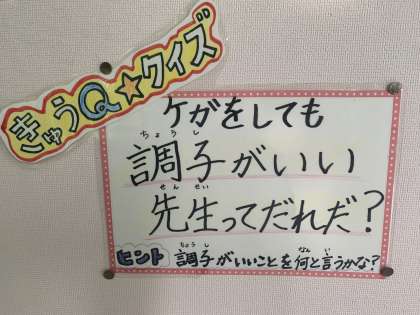 きゅうQ☆クイズ
ケガをしても
ちょうし
調子がいい
せんせい
先生ってだれだ?
ヒント 調子がいいことを何と言うかな?
ちょうし なん い